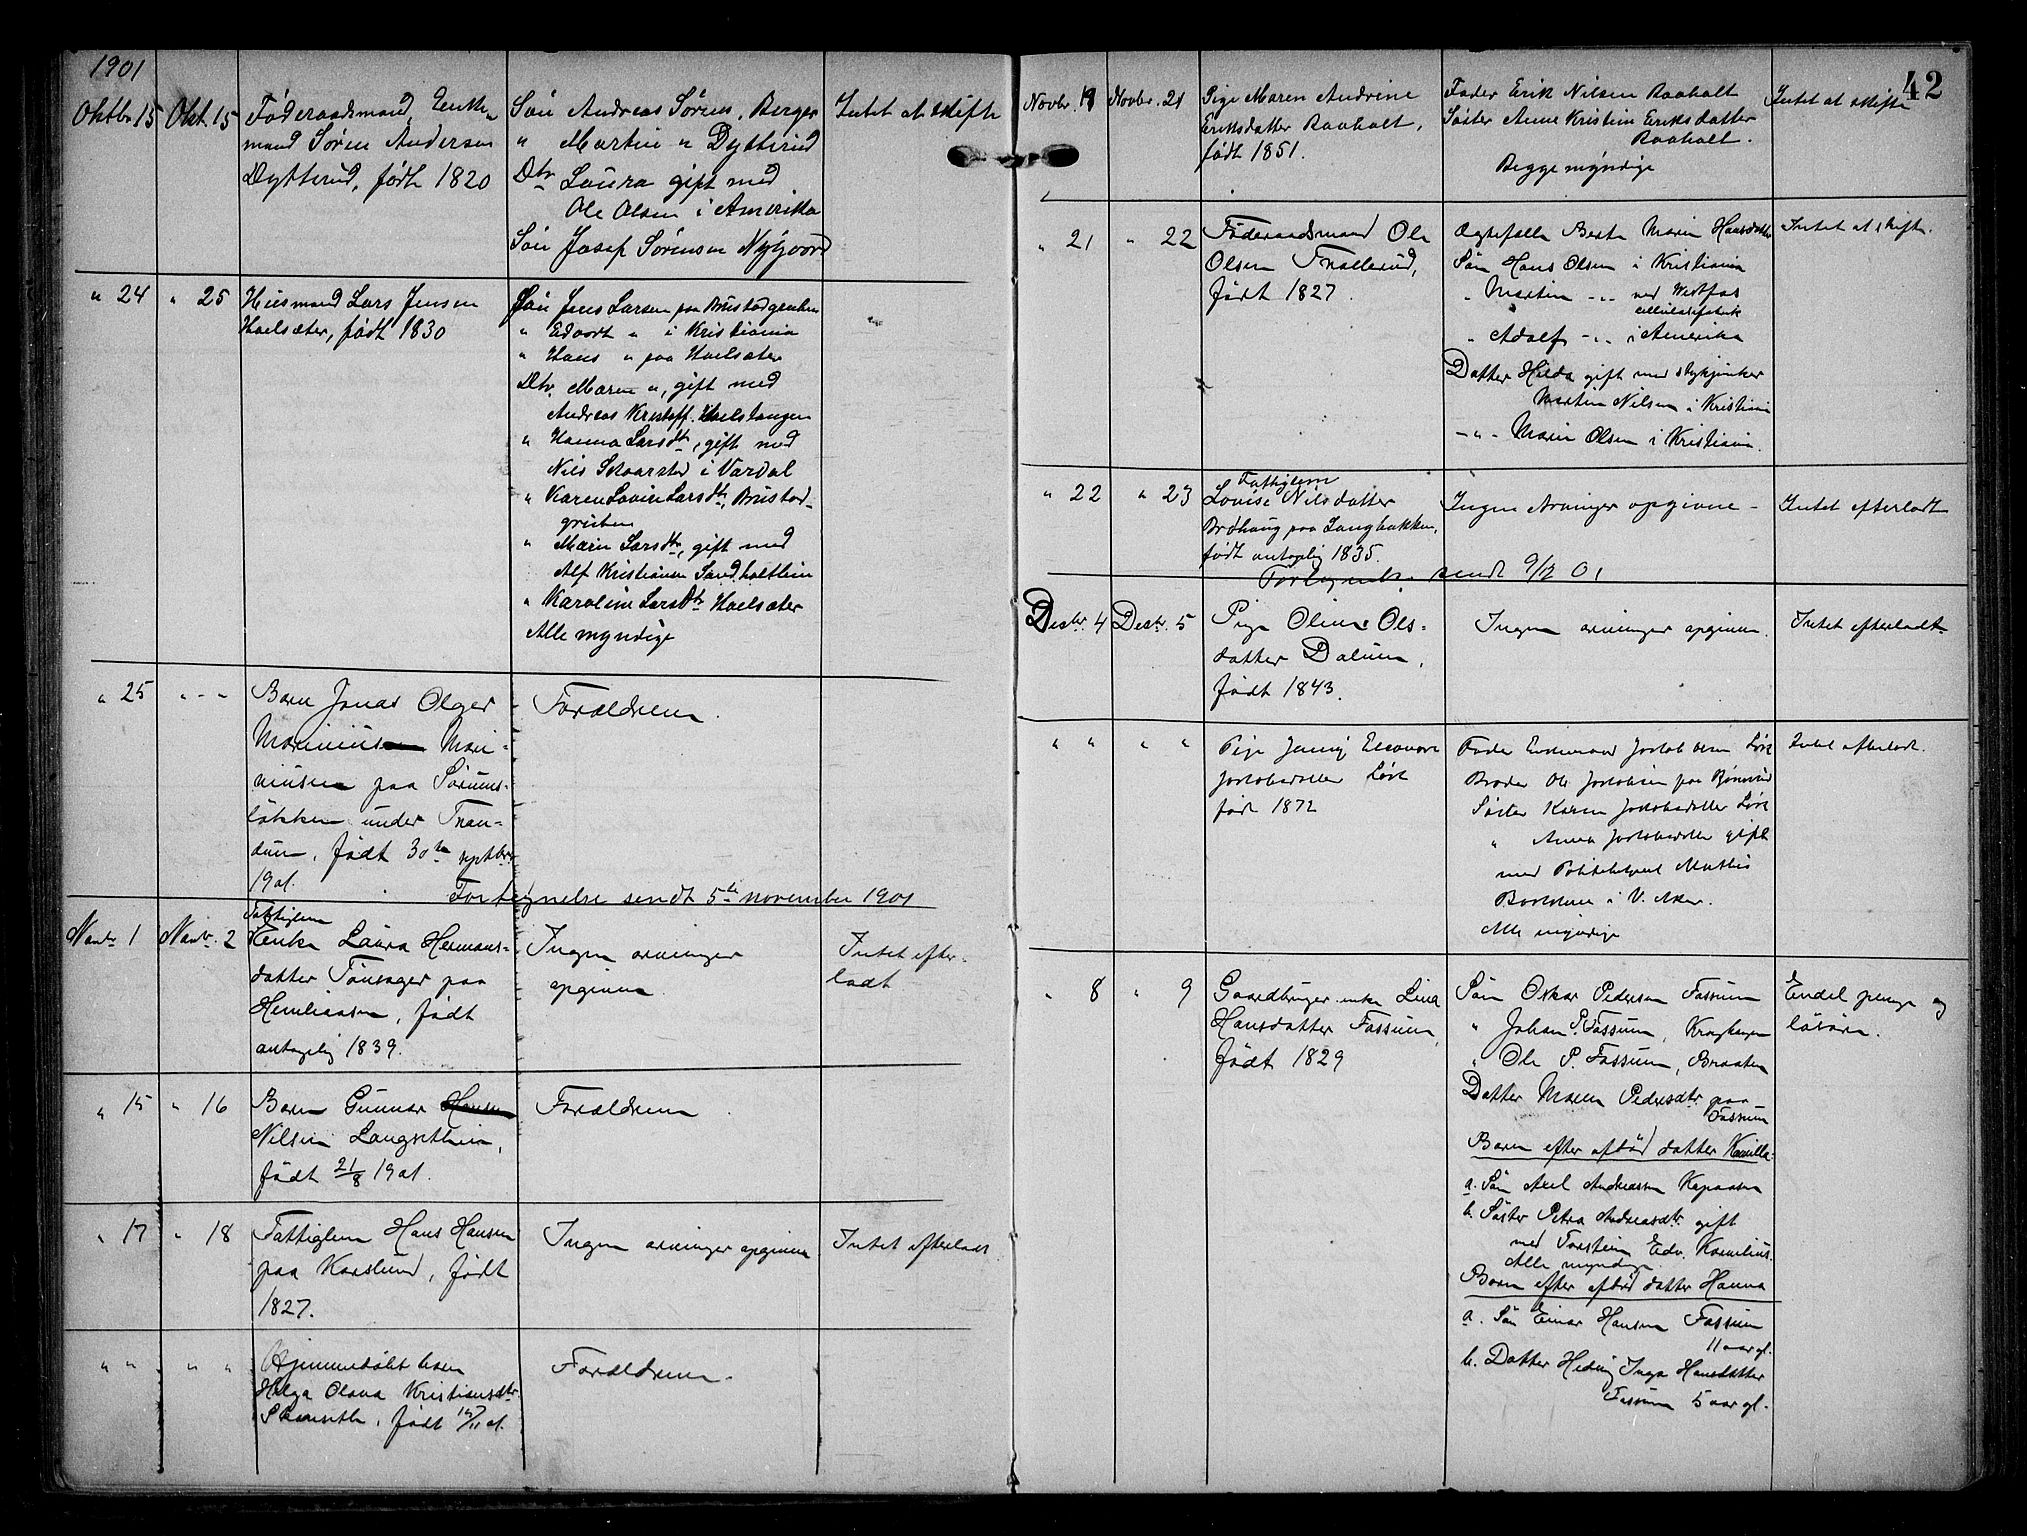 1901
42
Oktbr 15
Okt. 15
Føderaadsmand, Enke-
mand Søren Andersen
Dytterud, født 1820
Søn Andreas Sørens. Berger
" Martin " Dytterud
Dtr Laura gift med
Ole Olsen i Amerika
Søn Josef Sørensen Nygaard
Intet at skifte
" 24
" 25
Husmand Lars Jensen
Hoelsæter, født 1830
Søn Jens Larsen paa Brustadgruben
" Edvardt " i Kristiania
" Hans " paa Hoelsæter
Dtr. Maren ", gift med
Andreas Kristoff. Hoelstangen
" Hanna Larsdtr, gift med
Nils Skaarstad i Vardal
" Karen Lovise Larsdtr, Brustad-
gruben
" Marie Larsdtr, gift med
Alf Kristiansen Sandholtlien
" Karoline Larsdtr Hoelsæter
Alle myndige
"
" 25
" - "
Barn Jonas Olger
Marinius Mari-
niusen paa Sørums-
løkken under Tran-
dum, født 30te septbr
1901.
Forældrene.
Fortegnelse sendt 5te november 1901
Novbr 1
Novbr. 2
Fattiglem
Enke Laura Hermans-
datter Tønsager paa
Hemliaasen, født
antagelig 1839.
Ingen arvinger
opgivne.
Intet efter-
ladt
" 15
" 16
Barn Gunnar Hansen
Nilsen Langsethlien,
født 21/8 1901.
Forældrene.
" 17
" 18
Fattiglem Hans Hansen
paa Karslund, født
1827.
Ingen arvinger opgivne
Intet efterladt
" "
" "
Hjemmedøbt barn
Helga Olava Kristiansdtr.
født 15/11 01.
Forældrene.
Novbr. 19
Novbr. 21
Pige Maren Andrine
Eriksdatter Raaholt,
født 1851.
Fader Erik Nilsen Raaholt
Søster Anne Kristine Eriksdatter
Raaholt.
Begge myndige
Intet at skifte
" 21
" 22
Føderaadsmand Ole
Olsen Trøllerud,
født 1827.
Ægtefælle Berte Marie Hansdatter
Søn Hans Olsen i Kristiania
" Martin -"- ved Vestfos
cellulosefabrik
" Adolf -"- i Amerika
Datter Hilda gift med skykjører
Martin Nilsen i Kristiania
-"- Marie Olsen i Kristiania.
Intet at skifte.
" 22
" 23
Fattiglem
Lovise Nilsdatter
Brøhaug paa Langbakken,
født antagelig 1835.
Ingen Arvinger opgivne -
Intet efterladt
Fortegnelse sendt 9/12 01
Desbr. 4
Desbr. 5
Pige Oline Ols-
datter Dalum,
født 1843.
Ingen arvinger opgivne.
Intet efterladt.
" "
" "
Pige Jenny Eleonore
Jakobsdatter Løre
født 1872
Fader Enkemand Jakob Olsen Løre
Broder Ole Jakobsen paa
Søster Karen Jakobsdatter Løre
" Anna Jakobsdatter gift
med Mathis
i V. Aker.
Alle myndige
Intet efterladt.
" 8
" 9
Gaardbruger enke Lina
Hansdatter Fossum,
født 1829
Søn Oskar Pedersen Fossum
" Johan P. Fossum, Kroghaugen
" Ole P. Fossum, Braaten
Datter Maren Pedersdtr. paa
Fossum
Barn efter afdød datter Kamilla:
a. Søn Axel Andreassen
b. Søster Petra Andreasdtr. gift
med Torstein Edv. Kornelius.
Alle myndige.
Barn efter afdød datter Hanna
a. Søn Einar Hansen Fossum
11 aar gl.
b. Datter Hedvig Inga Hansdatter
Fossum 5 aar gl.
Endel penge og
løsøre.